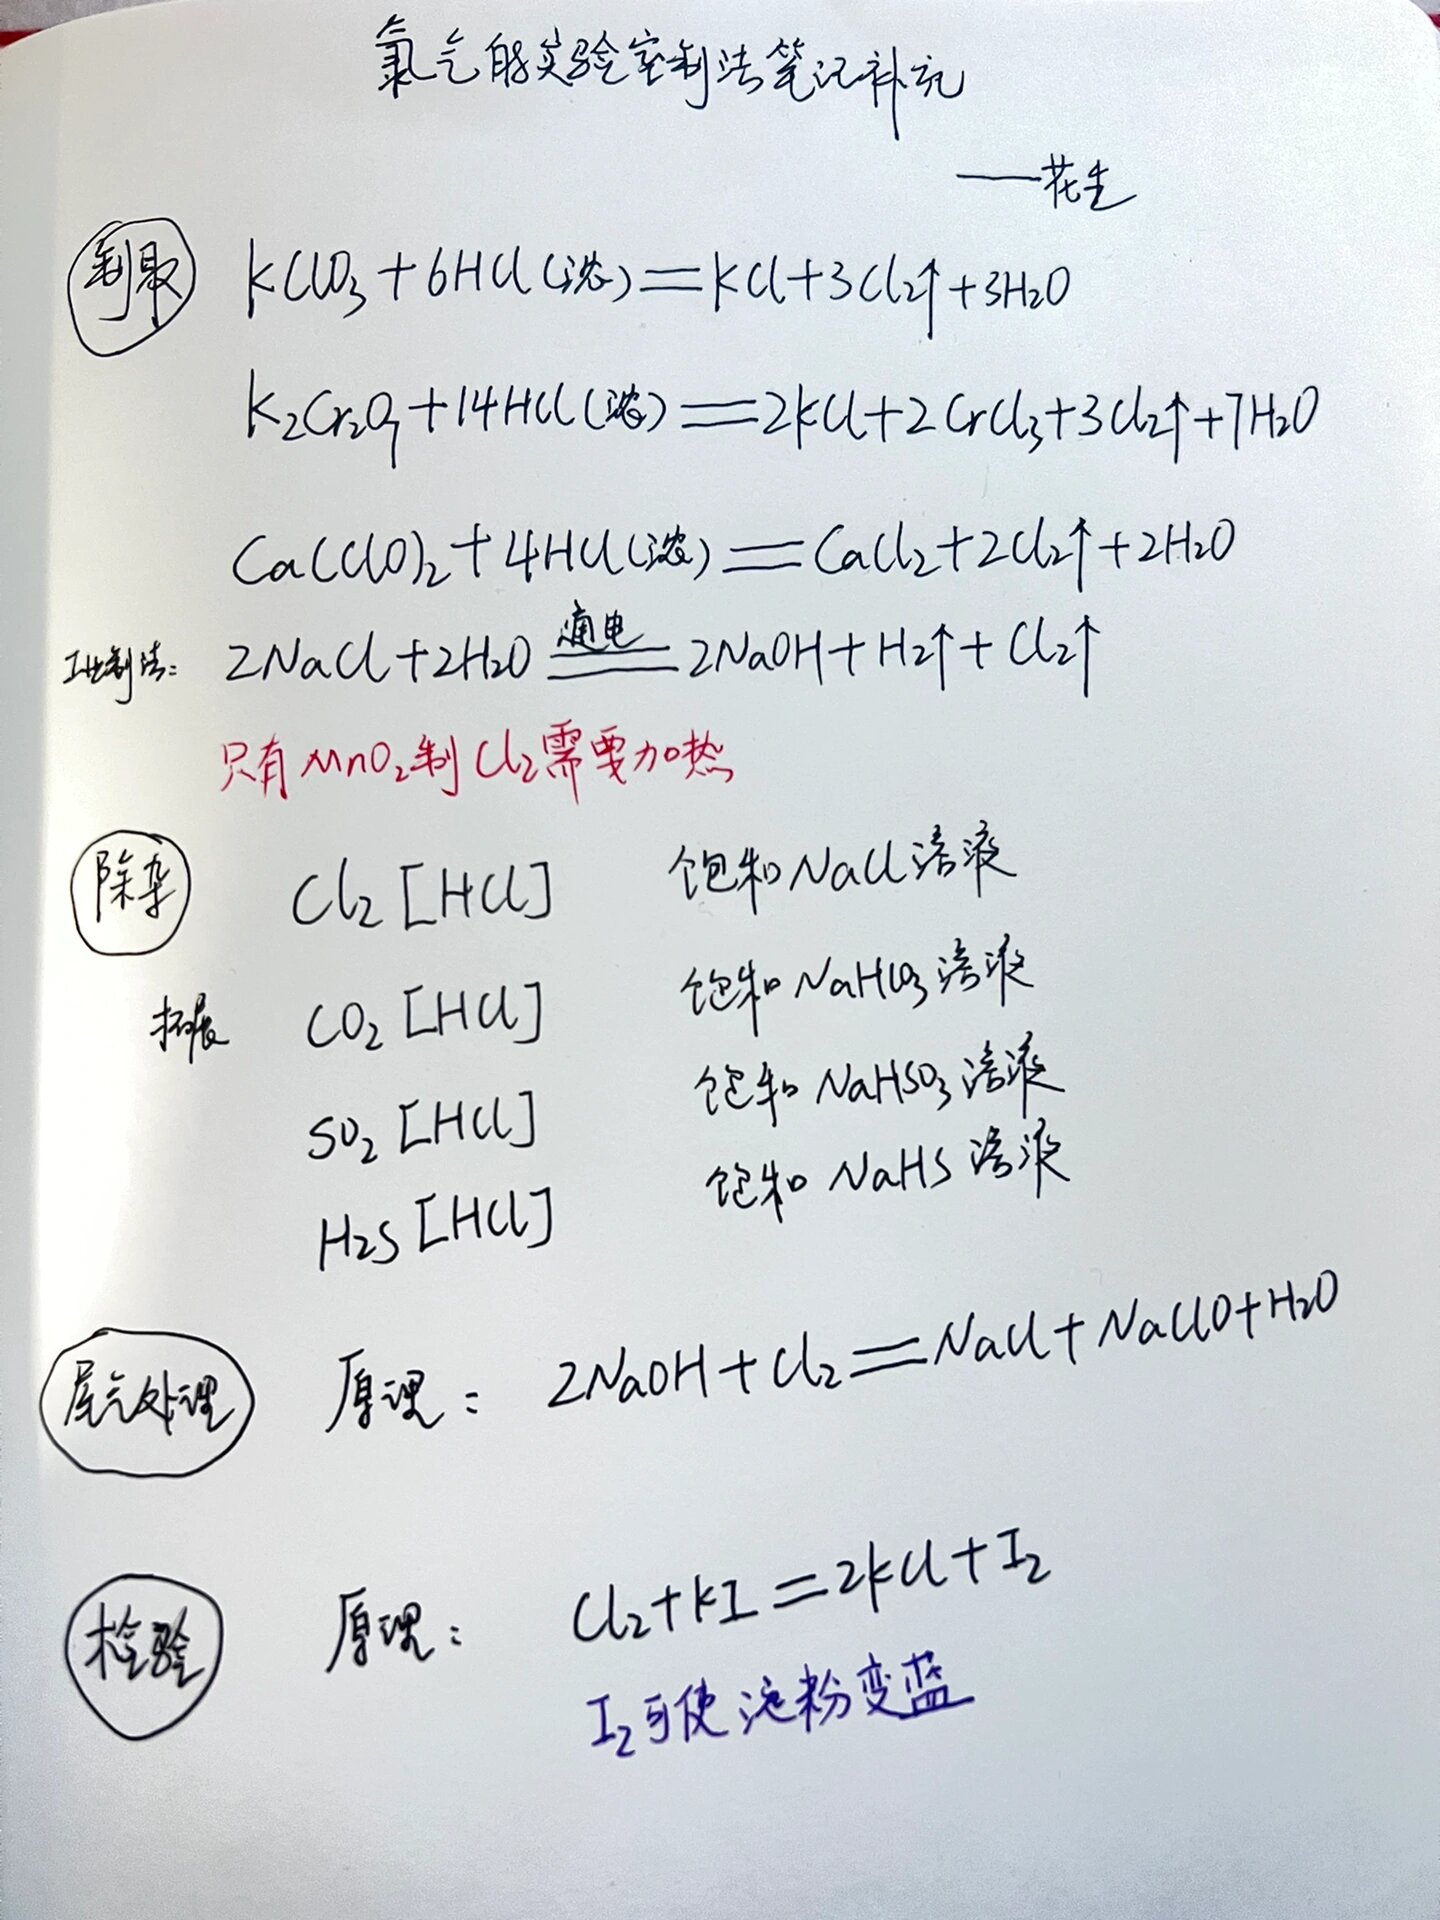 氯气的实验室制法笔记补充
——花生
制取 KClO₃+6HCl(浓)=KCl+3Cl₂↑+3H₂O
K₂Cr₂O₇+14HCl(浓)=2KCl+2CrCl₃+3Cl₂↑+7H₂O
Ca(ClO)₂+4HCl(浓)=CaCl₂+2Cl₂↑+2H₂O
工业制法: 2NaCl+2H₂O 通电 2NaOH+H₂↑+Cl₂↑
只有MnO₂制Cl₂需要加热
除杂 Cl₂[HCl] 饱和NaCl溶液
拓展 CO₂[HCl] 饱和NaHCO₃溶液
SO₂[HCl] 饱和NaHSO₃溶液
H₂S[HCl] 饱和NaHS溶液
尾气处理 原理: 2NaOH+Cl₂=NaCl+NaClO+H₂O
检验 原理: Cl₂+KI=2KCl+I₂
I₂可使淀粉变蓝